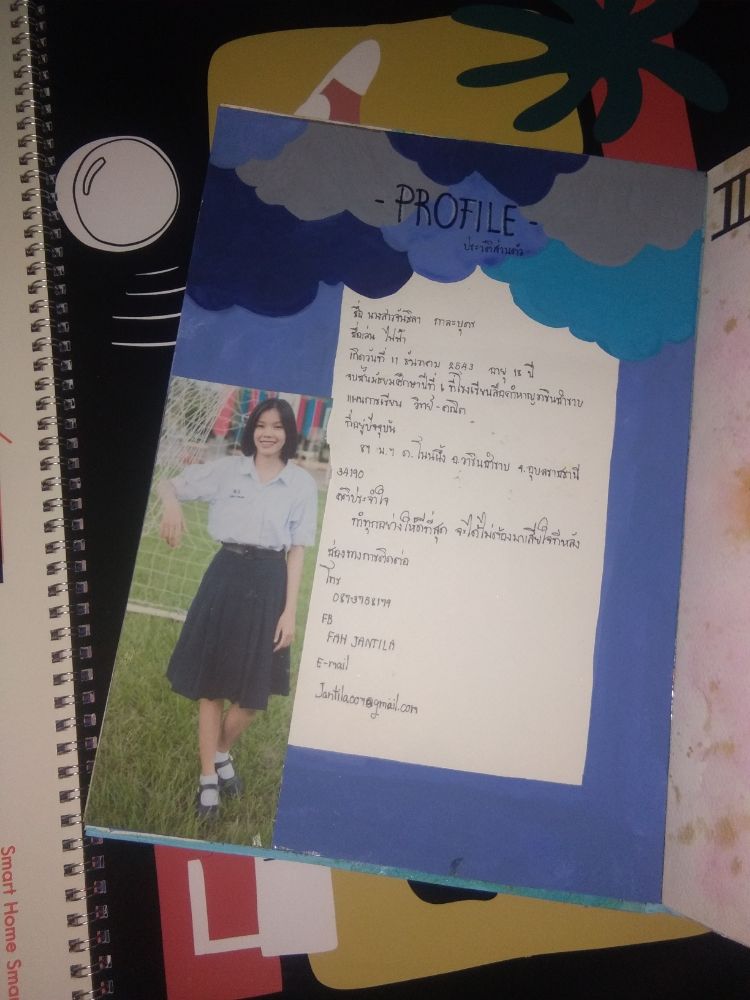 - PROFILE -
ประวัติส่วนตัว
ชื่อ นางสาวจันธิลา
ชื่อเล่น ไฟฟ้า
เกิดวันที่ 11 ธันวาคม 2543 อายุ 18 ปี
จบชั้นมัธยมศึกษาปีที่ 6 ที่โรงเรียนลือคำหาญวารินชำราบ
แผนการเรียน วิทย์-คณิต
ที่อยู่ปัจจุบัน
ต.โนนผึ้ง อ.วารินชำราบ จ.อุบลราชธานี
34190
คติประจำใจ
ทำทุกอย่างให้ดีที่สุด จะได้ไม่ต้องมาเสียใจทีหลัง
ช่องทางการติดต่อ
โทร
FB
FAH JANTILA
E-mail
Smart Home Smar
II